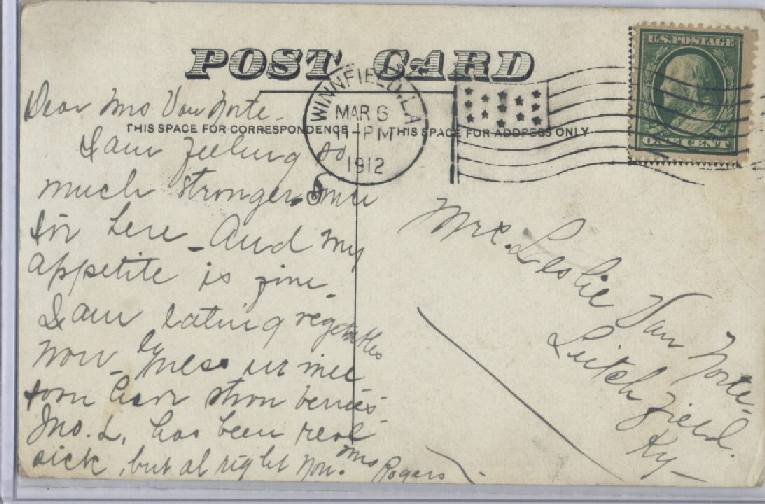 POST CARD
THIS SPACE FOR CORRESPONDENCE
THIS SPACE FOR ADDRESS ONLY
WINNFIELD, LA
MAR 6
PM
1912
U.S. POSTAGE
ONE CENT
Dear Mrs Van Norte.
I am feeling so
much stronger since
for here. And my
appetite is fine.
I am eating vegetables
now
berries.
Jno. L. has been real
sick, but al right now. Mrs Rogers
Mrs. Leslie Van Norte.
Litch field.
Ky